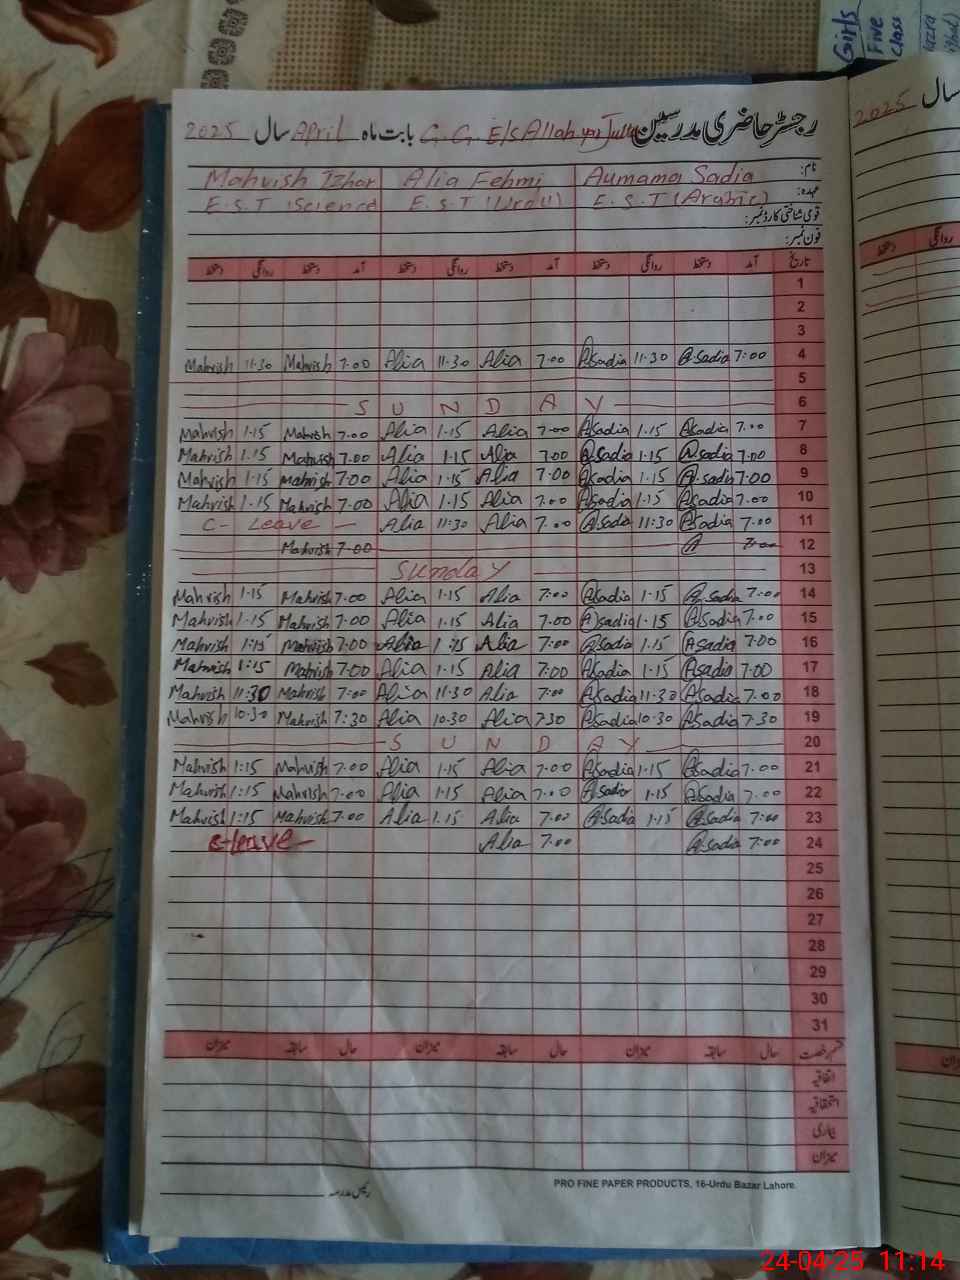 Girls
Five
Class
رجسٹر حاضری مدرسین G.G. E/S Allah yar بابت ماہ April سال 2025
سال 2025
نام: Aumama Sadia Alia Fehmi Mahvish Izhar
عہدہ: E.S.T (Arabic) E.S.T (Urdu) E.S.T (Science)
قومی شناختی کارڈ نمبر:
فون نمبر:
تاریخ آمد دستخط روانگی دستخط آمد دستخط روانگی دستخط آمد دستخط روانگی دستخط
آمد دستخط روانگی دستخط
1
2
3
Mahvish 11:30 Mahvish 7.00 Alia 11:30 Alia 7.00 A.Sadia 11.30 A.Sadia 7:00 4
5
SUNDAY 6
Mahvish 1.15 Mahvish 7.00 Alia 1.15 Alia 7.00 A.Sadia 1.15 A.Sadia 7.00 7
Mahvish 1.15 Mahvish 7.00 Alia 1.15 Alia 7.00 A.Sadia 1.15 A.Sadia 7.00 8
Mahvish 1.15 Mahvish 7.00 Alia 1.15 Alia 7.00 A.Sadia 1.15 A.Sadia 7.00 9
Mahvish 1.15 Mahvish 7.00 Alia 1.15 Alia 7.00 A.Sadia 1.15 A.Sadia 7.00 10
C- Leave - Alia 11:30 Alia 7.00 A.Sadia 11:30 A.Sadia 7.00 11
Mahvish 7.00 A 7.00 12
Sunday 13
Mahvish 1.15 Mahvish 7.00 Alia 1.15 Alia 7.00 A.Sadia 1.15 A.Sadia 7.00 14
Mahvish 1.15 Mahvish 7.00 Alia 1.15 Alia 7.00 A.Sadia 1.15 A.Sadia 7.00 15
Mahvish 1:15 Mahvish 7.00 Alia 1.15 Alia 7.00 A.Sadia 1.15 A.Sadia 7.00 16
Mahvish 1:15 Mahvish 7.00 Alia 1.15 Alia 7.00 A.Sadia 1.15 A.Sadia 7.00 17
Mahvish 11:30 Mahvish 7.00 Alia 11.30 Alia 7.00 A.Sadia 11:30 A.Sadia 7.00 18
Mahvish 10.30 Mahvish 7:30 Alia 10.30 Alia 7.30 A.Sadia 10.30 A.Sadia 7.30 19
SUNDAY 20
Mahvish 1:15 Mahvish 7.00 Alia 1.15 Alia 7.00 A.Sadia 1.15 A.Sadia 7.00 21
Mahvish 1:15 Mahvish 7.00 Alia 1.15 Alia 7.00 A.Sadia 1.15 A.Sadia 7.00 22
Mahvish 1:15 Mahvish 7.00 Alia 1.15 Alia 7.00 A.Sadia 1.15 A.Sadia 7:00 23
C-leave- Alia 7.00 A.Sadia 7:00 24
25
26
27
28
29
30
31
قسم رخصت حال سابقہ میزان حال سابقہ میزان حال سابقہ میزان
اتفاقیہ
استحقاقیہ
بیماری
میزان
رئیس مدرسہ
PRO FINE PAPER PRODUCTS, 16-Urdu Bazar Lahore.
24-04-25 11:14